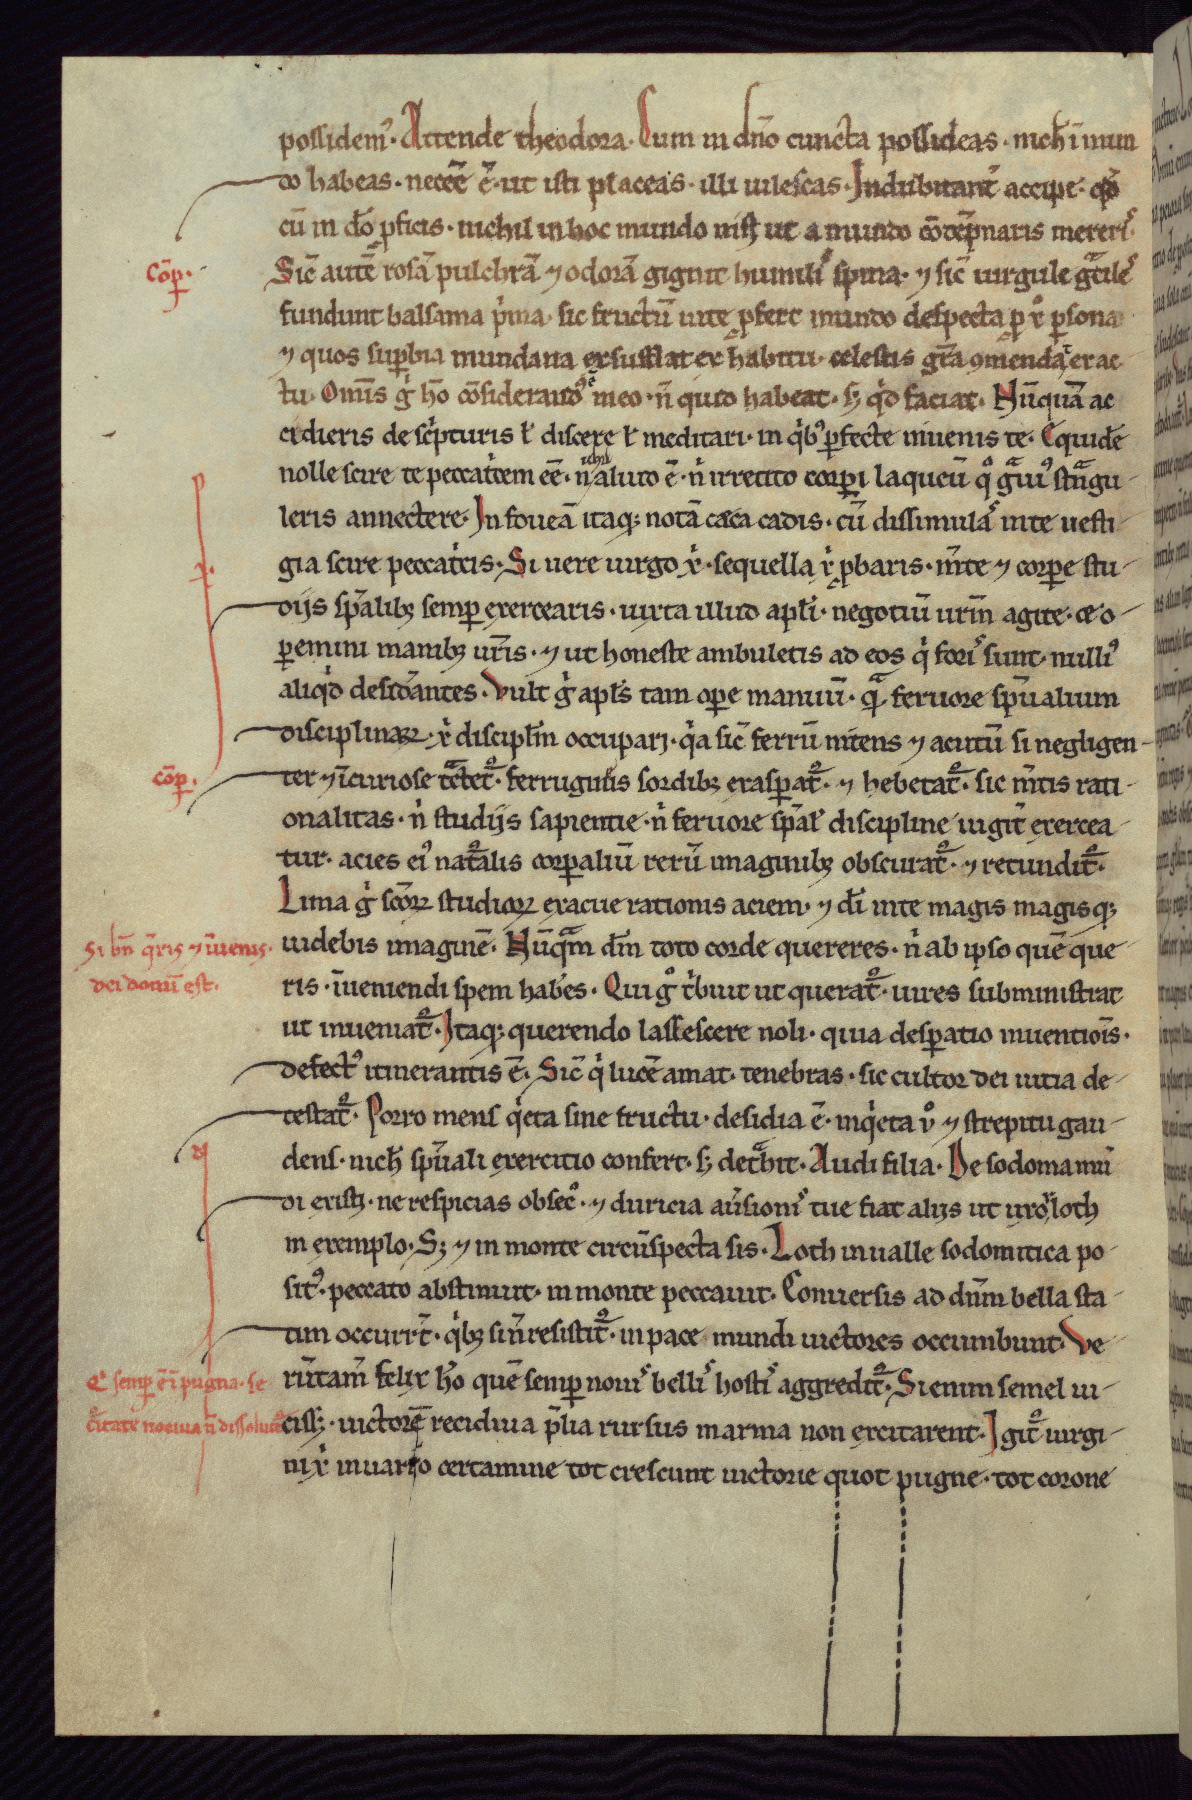 possidem᷒. Attende theodora. Cum in dn̄o cuncta possideas. nich̄ ī mun
do habeas. necēē ē. ut isti placeas. illi uilescas. Indubitant̄ accipe. qd̄
cū in dō ꝓficis. nichil in hoc mundo nisi ut a mundo cōtēpnaris mereris.
Sic̄ autē rosā pulchrā ⁊ odorā gignit humilis spina. ⁊ sic̄ uirgule gͣciles
fundunt balsama p̄ma. sic fructū uite ꝓfert mundo despecta ꝑ xͦ ꝑsona
⁊ quos suꝑbia mundana exsufflat ex habitu. celestis gr̄a ꝯmendat ex ac
tu. Om̄is gͥ hō cōsiderand᷒ ē in eo. n̄ quid habeat. sꝫ qͥd faciat. Nūquā ac
cideris de sc̄pturis ł discere ł meditari. in qͥbꝫ ꝑfecte inuenis te. Equidē
nolle scire te peccatͥcem eē. nichil aliud ē. nͥ irretito corꝑi laqueū qͦ gͣui᷒ stͣngu
leris annectere. In foueā itaqꝫ notā cæca cadis. cū dissimulas in te uesti
gia scire peccatͥcis. Si uere uirgo xͥ. sequella xͥ ꝓbaris. m̄te ⁊ corꝑe stu
dijs sp̄alibꝫ semꝑ exercearis. iuxta illud apl̄i. negotiū ur̄m agite. ⁊ o
ꝑemini manibꝫ ur̄is. ⁊ ut honeste ambuletis ad eos qͥ foris sunt. nulli᷒
aliqͥd desid̄antes. Vult gͥ apl̄s tam oꝑe manuū. qͣ feruore sp̄ualium
disciplinaꝝ. xͥ discipl̄m occupari. qͥa sic̄ ferrū nitens ⁊ acutū si negligen
ter ⁊ īcuriose tͣctet᷒. ferruginis sordibꝫ exasꝑat᷒. ⁊ hebetat᷒. sic m̄tis rati
onalitas. nͥ studijs sapientie. nͥ feruore sp̄al᷒ discipline iugit̄ exercea
tur. acies ei᷒ nat᷒alis corꝑaliū rerū imaginibꝫ obscurat᷒. ⁊ retundit᷒.
Lima gͥ sc̄oꝝ studioꝝ exacue rationis aciem. ⁊ dī in te magis magisqꝫ
uidebis imaginē. Nūqͣm dm̄ toto corde quereres. nͥ ab ipso quē que
ris. īueniendi spem haberes. Qui gͦ tͥbuit ut querat᷒. uires subministrat
ut inueniat᷒. Itaqꝫ querendo lassescere noli. quia desꝑatio inuentiōis.
defect᷒ itinerantis ē. Sic̄ qͥ lucē amat. tenebras. sic cultor dei uitia de
testat᷒. Porro mens qͥeta sine fructu. desidia ē. inqͥeta uͦ ⁊ strepitu gau
dens. nich̄ sp̄uali exercitio confert. sꝫ detͣhit. Audi filia. De sodoma mū
di existi. ne respicias obsecͦ. ⁊ duricia au̓sionis tue fiat alijs ut uxor loth
in exemplo. Sꝫ ⁊ in monte circūspecta sis. Loth in ualle sodomitica po
sit᷒. peccato abstinuit. in monte peccauit. Conuersis ad dn̄m bella sta
tim occurrt̄. qͥbꝫ si n̄ resistit᷒. in pace mundi uictores occumbunt. Ve
rūtam̄ felix hō quē semꝑ nouis bellis hostis aggredit᷒. Si enim semel ui
cissꝫ. uictorē recidiua p̄lia rursus in arma non excitarent. Igit᷒ uirgi
ni xͥ in uario certamine tot crescunt uictorie quot pugne. tot corone
Cōꝑ.
cōꝑ.
Si bn̄ qͥris ⁊ īuenis.
dei donū est.
E semꝑ ē ī pugna. se
c᷒itate noeiua n̄ dissoluit᷒